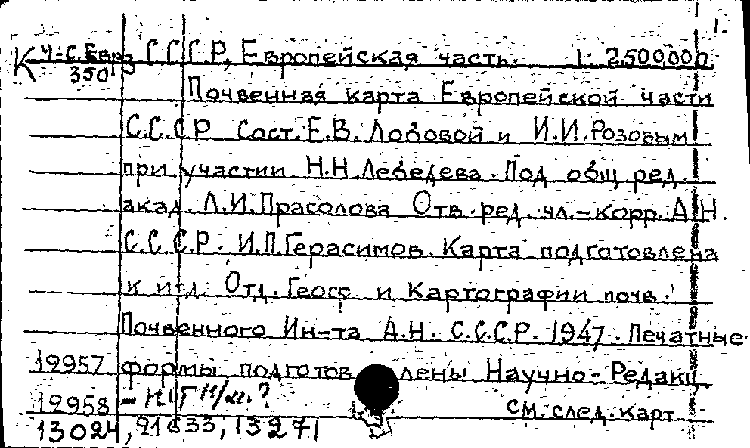 1.
К Ч-С.Евр С.С.С.Р, Европейская часть. 1:2500000
350
Почвенная карта Европейской части
С.С.С.Р Сост. Е.В. Лобовой и И.И. Розовым
при участии Н.Н. Лебедева. Под общ ред.
акад. Л.И. Прасолова Отв. ред. чл.-корр. А.Н.
С.С.С.Р. И.П. Герасимов. Карта подготовлена
к изд. Отд. Геогр и Картографии почв.
Почвенного Ин-та А.Н. С.С.С.Р. 1947. Печатные
12957 формы подготовлены Научно-Редакц
12958 см. след. карт
13024, 13271